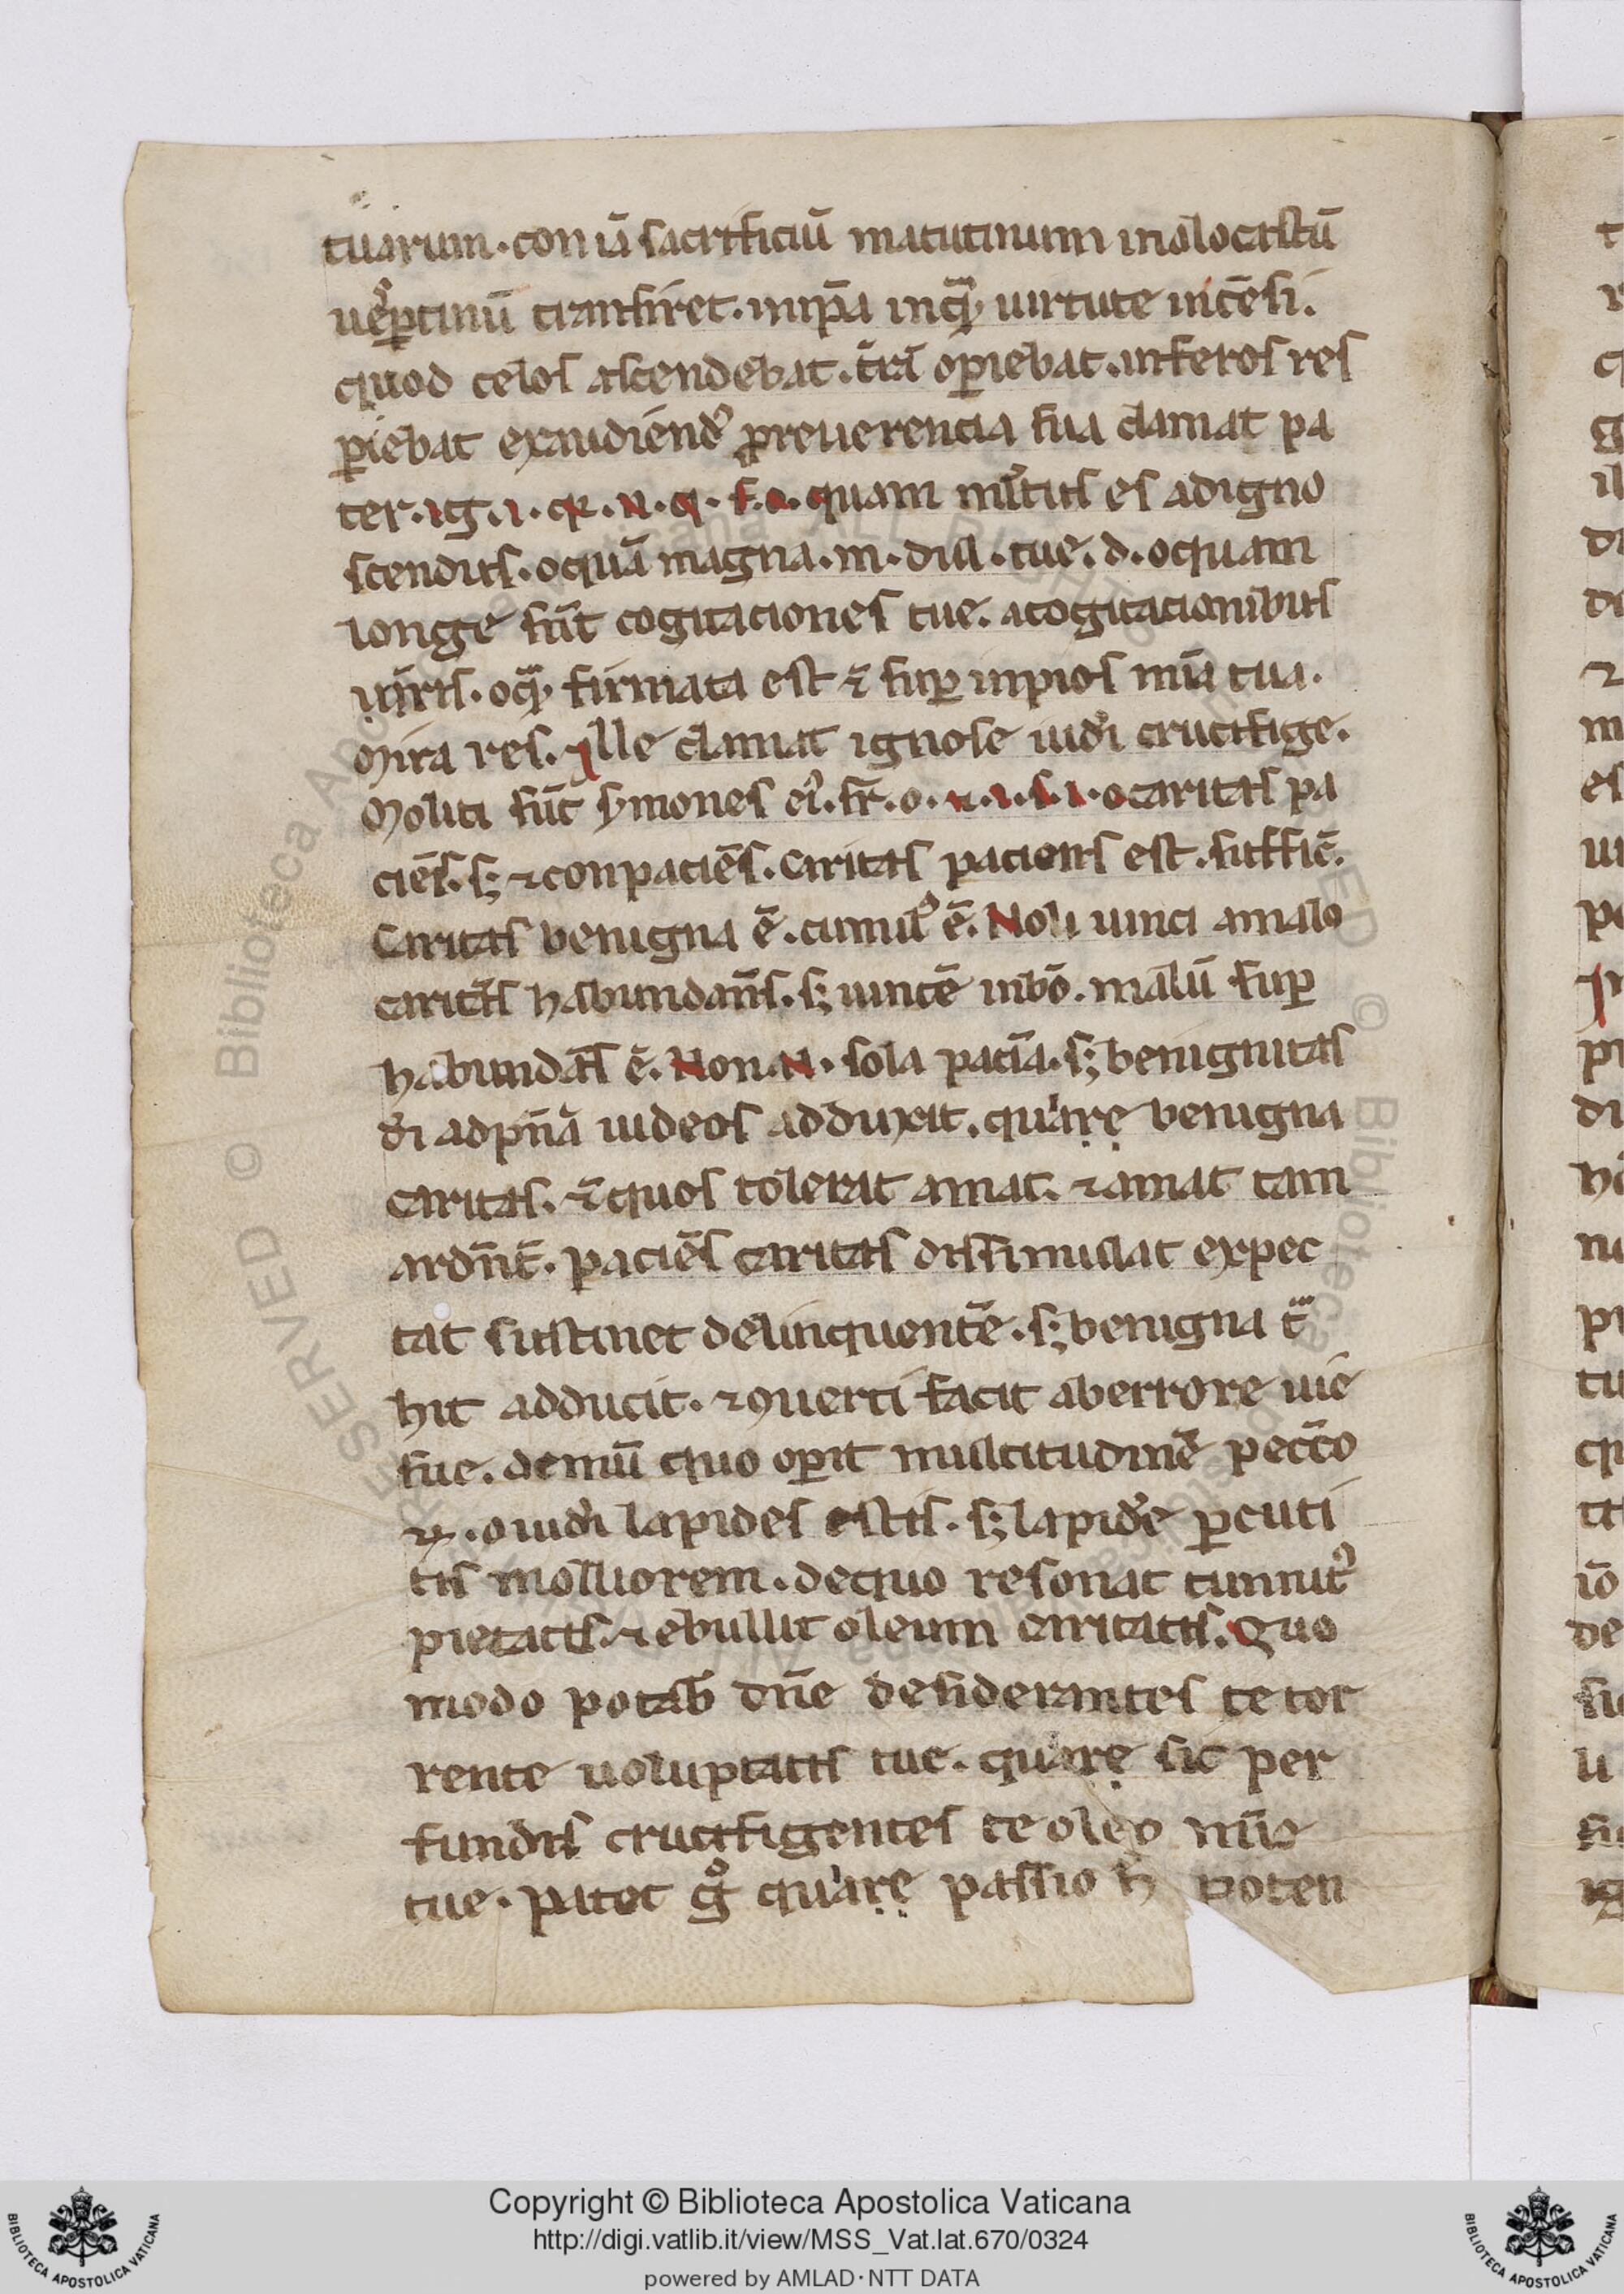 tuarum. con iā sacrificiū matutinum in olocaustū
uesꝑtinū transiret. in ip̄a inquā uirtute incēsi.
quod celos ascendebat. t̄rā oꝑiebat. inferos res
ꝑiebat exaudiendꝰ ꝓ reuerencia sua clamat pa
ter. ig. i. q̄. n. q. f. o. quam m̄ltus es ad igno
scendus. o quā magna. m. dul. tue. d. o quam
longe sūt cogitaciones tue. a cogitacionibus
uīris. o quā firmata est ⁊ suꝑ inpios mīa tua.
Mira res. ille clamat ignose iudi crucifige.
Moliti sūt symones eiꝰ. sr̄. o. n. i. s. i. o caritas pa
ciēs. sꝫ ⁊ conpaciēs. Caritas paciens est. suffic̄.
Caritas benigna ē. cumulꝰ ē. Noli uinci a malo
caritas habundans. sꝫ uince in bō. malū suꝑ
habundās ē. Non. N. sola pacīa. sꝫ benignitas
di ad pn̄ā iudeos adduxit. quare benigna
Caritas. ⁊ quos tolerat amat. ⁊ amat tam
ardn̄t. paciēs caritas dissimulat expec
tat sustinet delinquentē. sꝫ benigna tͣ
hit adducit. ⁊ ꝯuerti facit ab errore uie
sue. demū quo oꝑit multitudinē pecc̄o
ꝝ. o iudi lapides estis. sꝫ lapidē ꝑcuti
tis molliorem. de quo resonat tinnitꝰ
pietatis. ⁊ ebullit oleum caritatis. Quo
modo potab dn̄e desiderantes te tor
rente uoluptatis tue. quare sic per
fundis crucifigentes te oleo mīe
tue. patet gͦ quare passio h poten
Copyright © Biblioteca Apostolica Vaticana
http://digi.vatlib.it/view/MSS_Vat.lat.670/0324
powered by AMLAD · NTT DATA